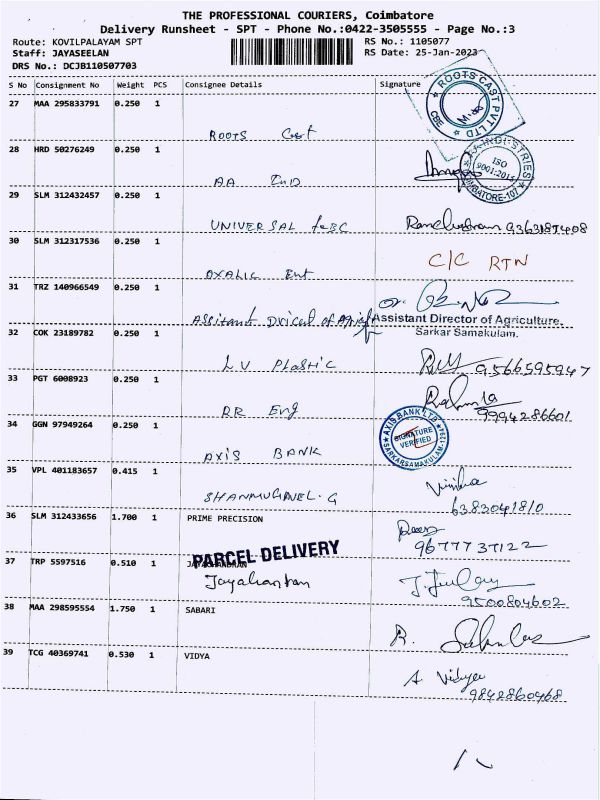 THE PROFESSIONAL COURIERS, Coimbatore
Delivery Runsheet - SPT - Phone No.:0422-3505555 - Page No.:3
Route: KOVILPALAYAM SPT RS No.: 1105077
Staff: JAYASEELAN RS Date: 25-Jan-2023
DRS No.: DCJB110507703
S No Consignment No Weight PCS Consignee Details Signature
27 MAA 295833791 0.250 1
ROOTS Cast
ROOTS CAST PVT LTD CBE
28 HRD 50276249 0.250 1
AA IND
INDUSTRIES ISO 9001:2015 COIMBATORE-107
29 SLM 312432457 0.250 1
UNIVERSAL
30 SLM 312317536 0.250 1
OXALIC Ent C/C RTN
31 TRZ 140966549 0.250 1
Assistant Director of Agriculture.
Sarkar Samakulam.
32 COK 23189782 0.250 1
LV Plastic 9566595947
33 PGT 6008923 0.250 1
RR Eng 9994286601
34 GGN 97949264 0.250 1
AXIS BANK
AXIS BANK LTD SIGNATURE VERIFIED
35 VPL 401183657 0.415 1
SHANMUGAVEL.G 6383041810
36 SLM 312433656 1.700 1 PRIME PRECISION
9677737122
PARCEL DELIVERY
37 TRP 5597516 0.510 1 JAYACHANDRAN
9500804602
38 MAA 298595554 1.750 1 SABARI
39 TCG 40369741 0.530 1 VIDYA
A Vidya
9842860468